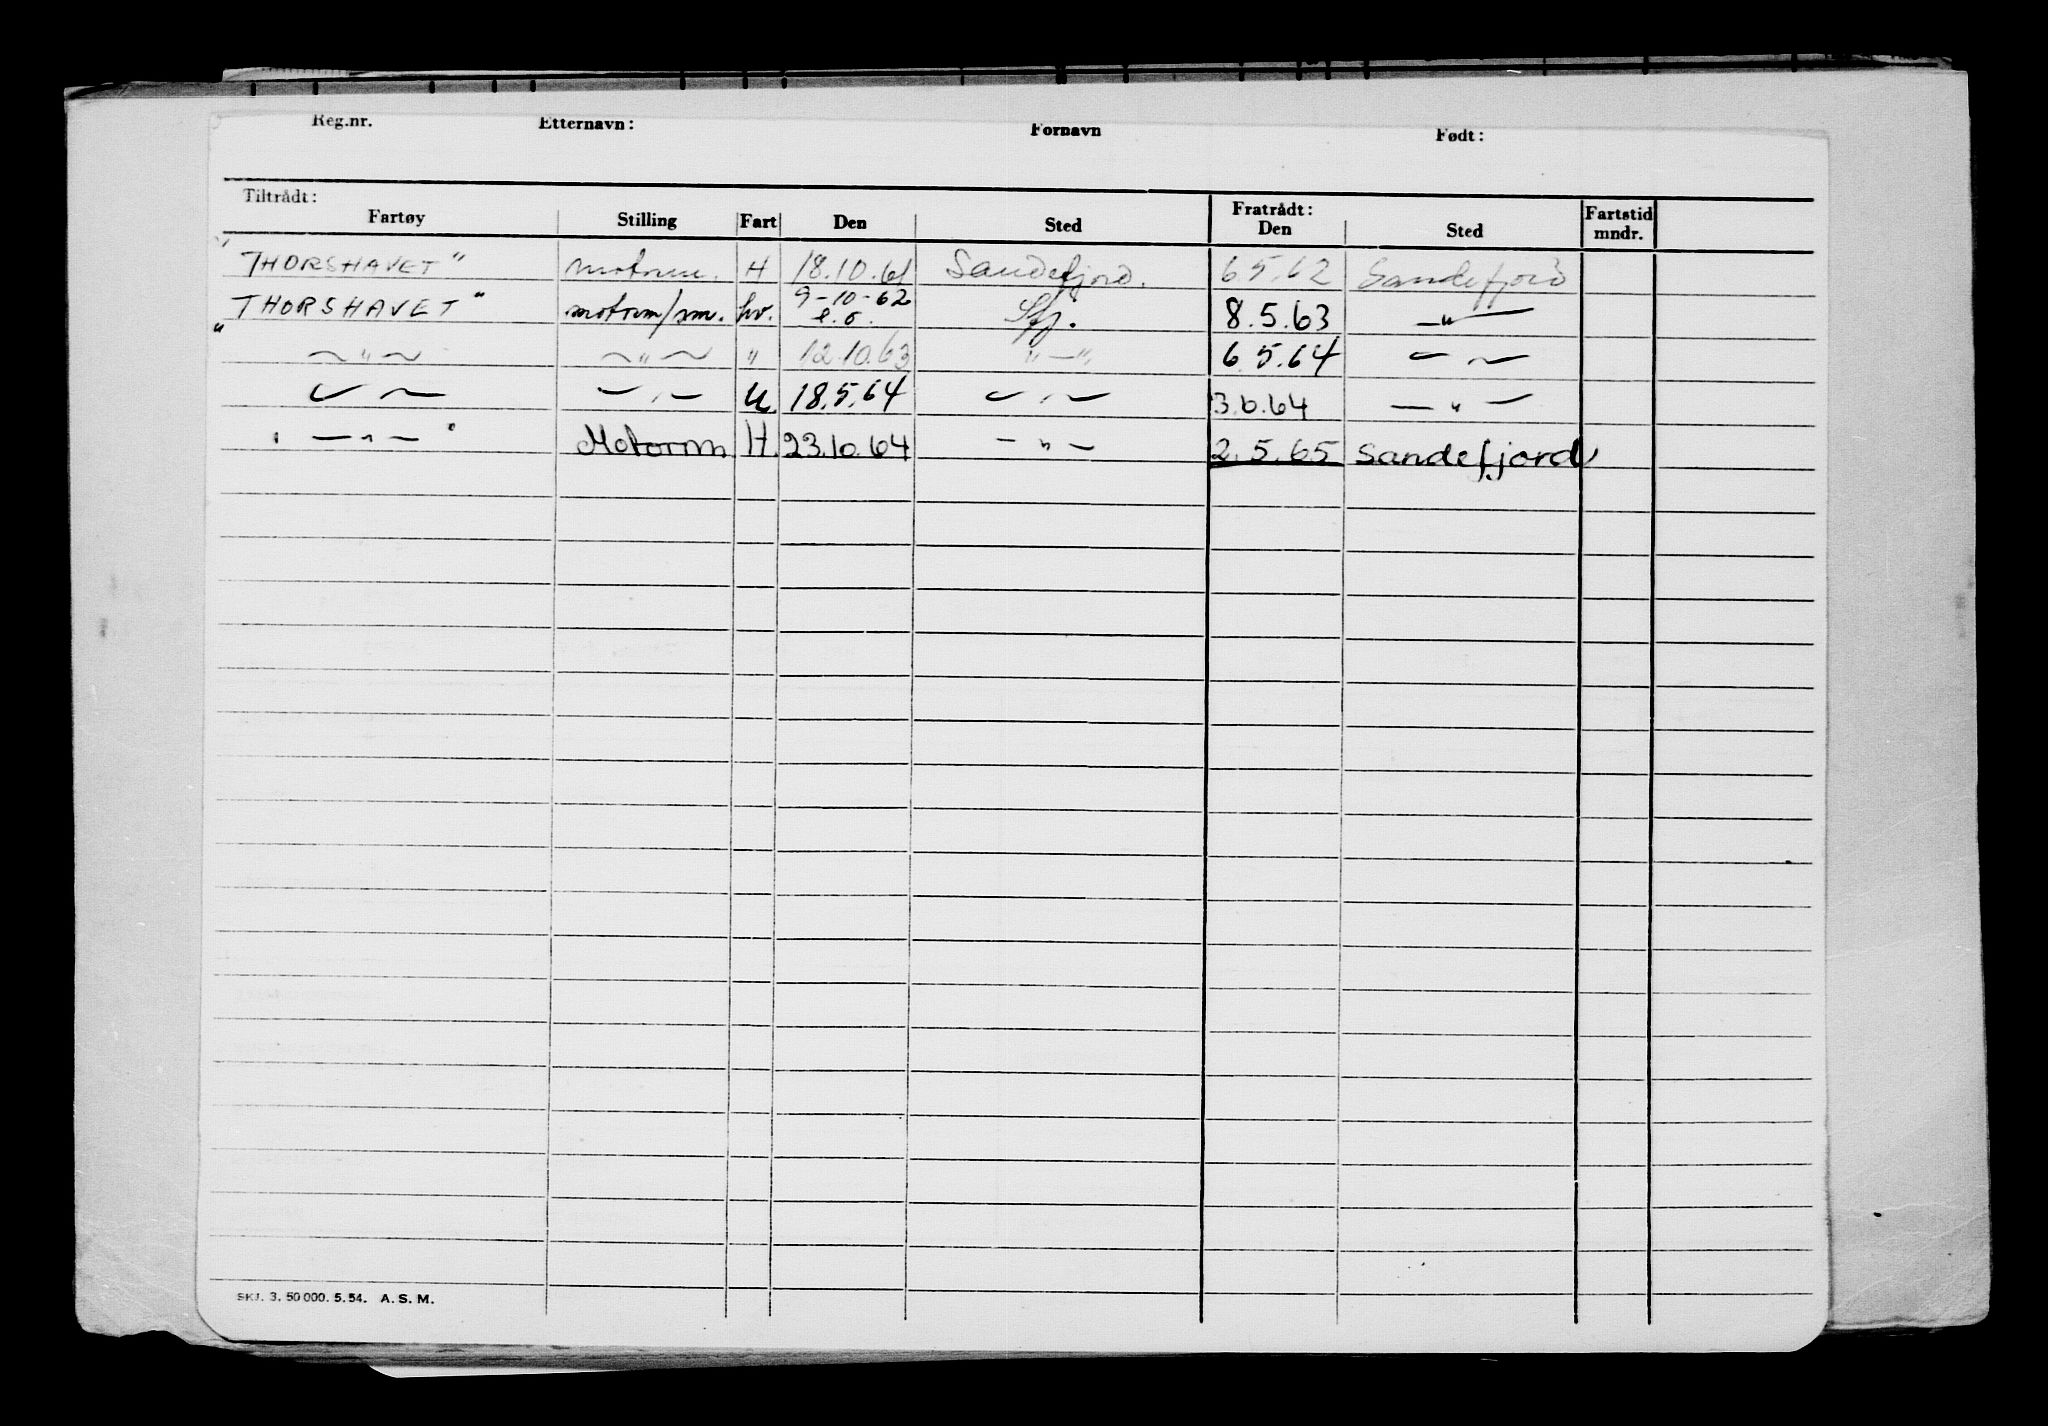 Reg.nr. Etternavn: Fornavn Født:
Tiltrådt: Fratrådt: Fartstid
Fartøy Stilling Fart Den Sted Den Sted mndr.
"THORSHAVET" motorm. H 18.10.61 Sandefjord. 6 5.62 Sandefjord
"THORSHAVET" motorm/sm. hv. 9-10-62 Sfj. 8.5.63 —"—
e.o.
—"— —"— " 12.10.63 "—" 6 5.64 — —
— — — — U 18.5.64 — — 3.6.64 —"—
" —"— " Motorm H. 23.10.64 —"— 2.5.65 Sandefjord
SKJ. 3. 50 000. 5. 54. A. S. M.